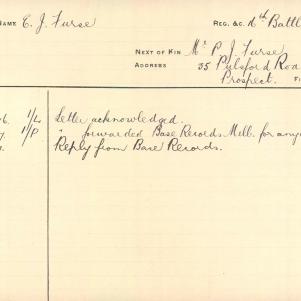 NAME E. J. Furse REG. &C. 16th Battl
NEXT OF KIN Mr P. J. Furse
ADDRESS 35 Pulsford Roa
Prospect.
6. 1/L Letter acknowledged.
7. 1/P " forwarded Base Records Melb. for any
Reply from Base Records.